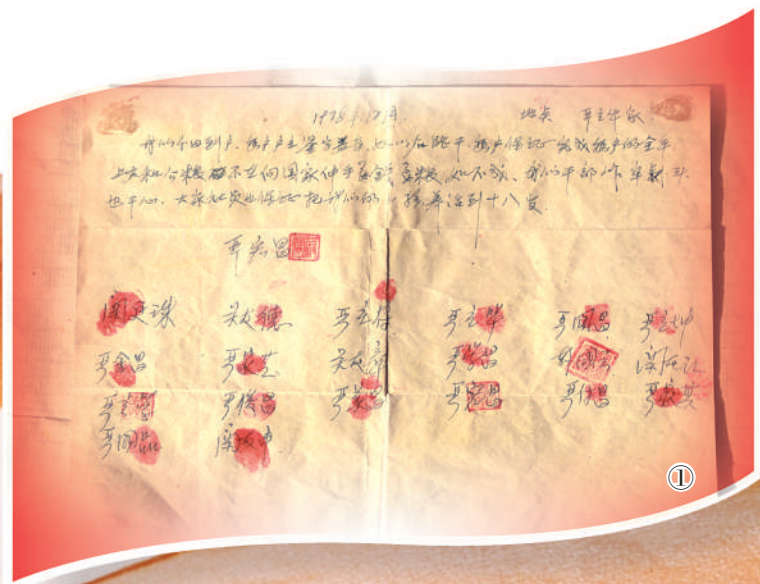 1978.12月. 地点 严立华家
我们分田到户,每户户主签字盖章,如以后能干,每户保证完成每户的全年
上交和公粮不在向国家伸手要钱要粮,如不成,我们干部作牢刹头
也干心,大家社员也保证把我们的小孩养活到十八岁
严宏昌
关廷珠 关友德 严立符 严立华 严国昌 严立坤
严金昌 严家芝 关友章 严学昌 韩国云 关友江
严立学 严俊昌 严美昌 严宏昌 严付昌 严家其
严国品 关友申
①